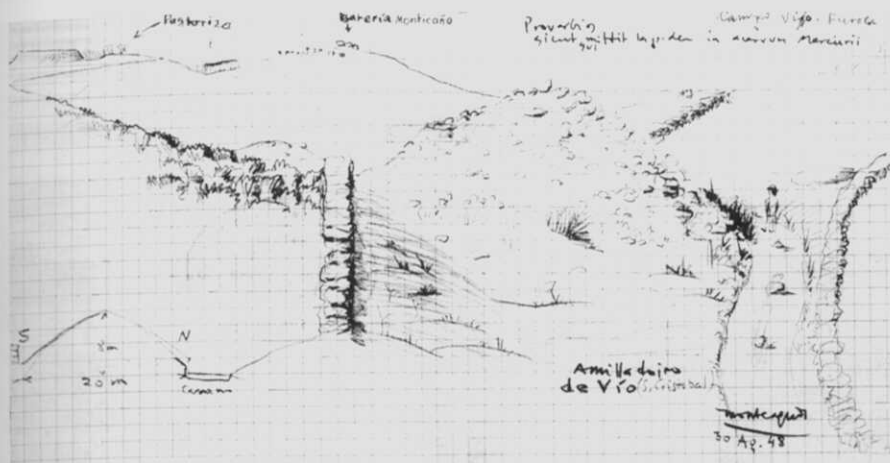 Pastoriza
Batería Monticaño
Proverbios
sicut qui mittit lapidem in acervum Mercurii
Campo Vijo
S
N
8 m
20 m
Camino
Amilladoiro
de Vío (S. Cristobal)
monteagudo
30 Ag. 48